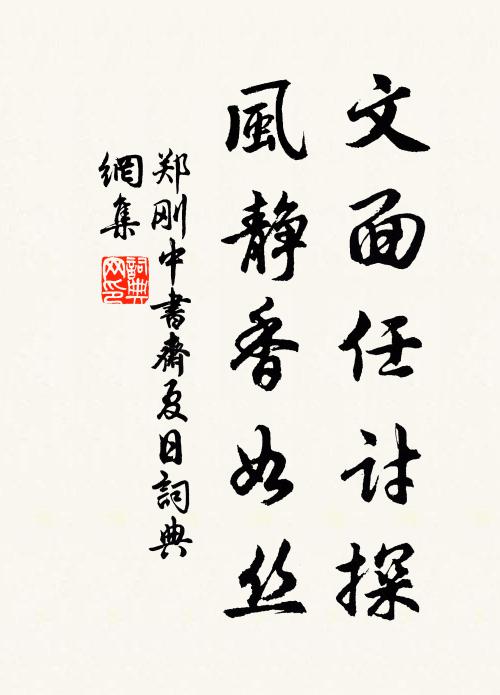 文面任討探
風静香如丝
郑刚中書齋夏日詞典
網集
詞典網印